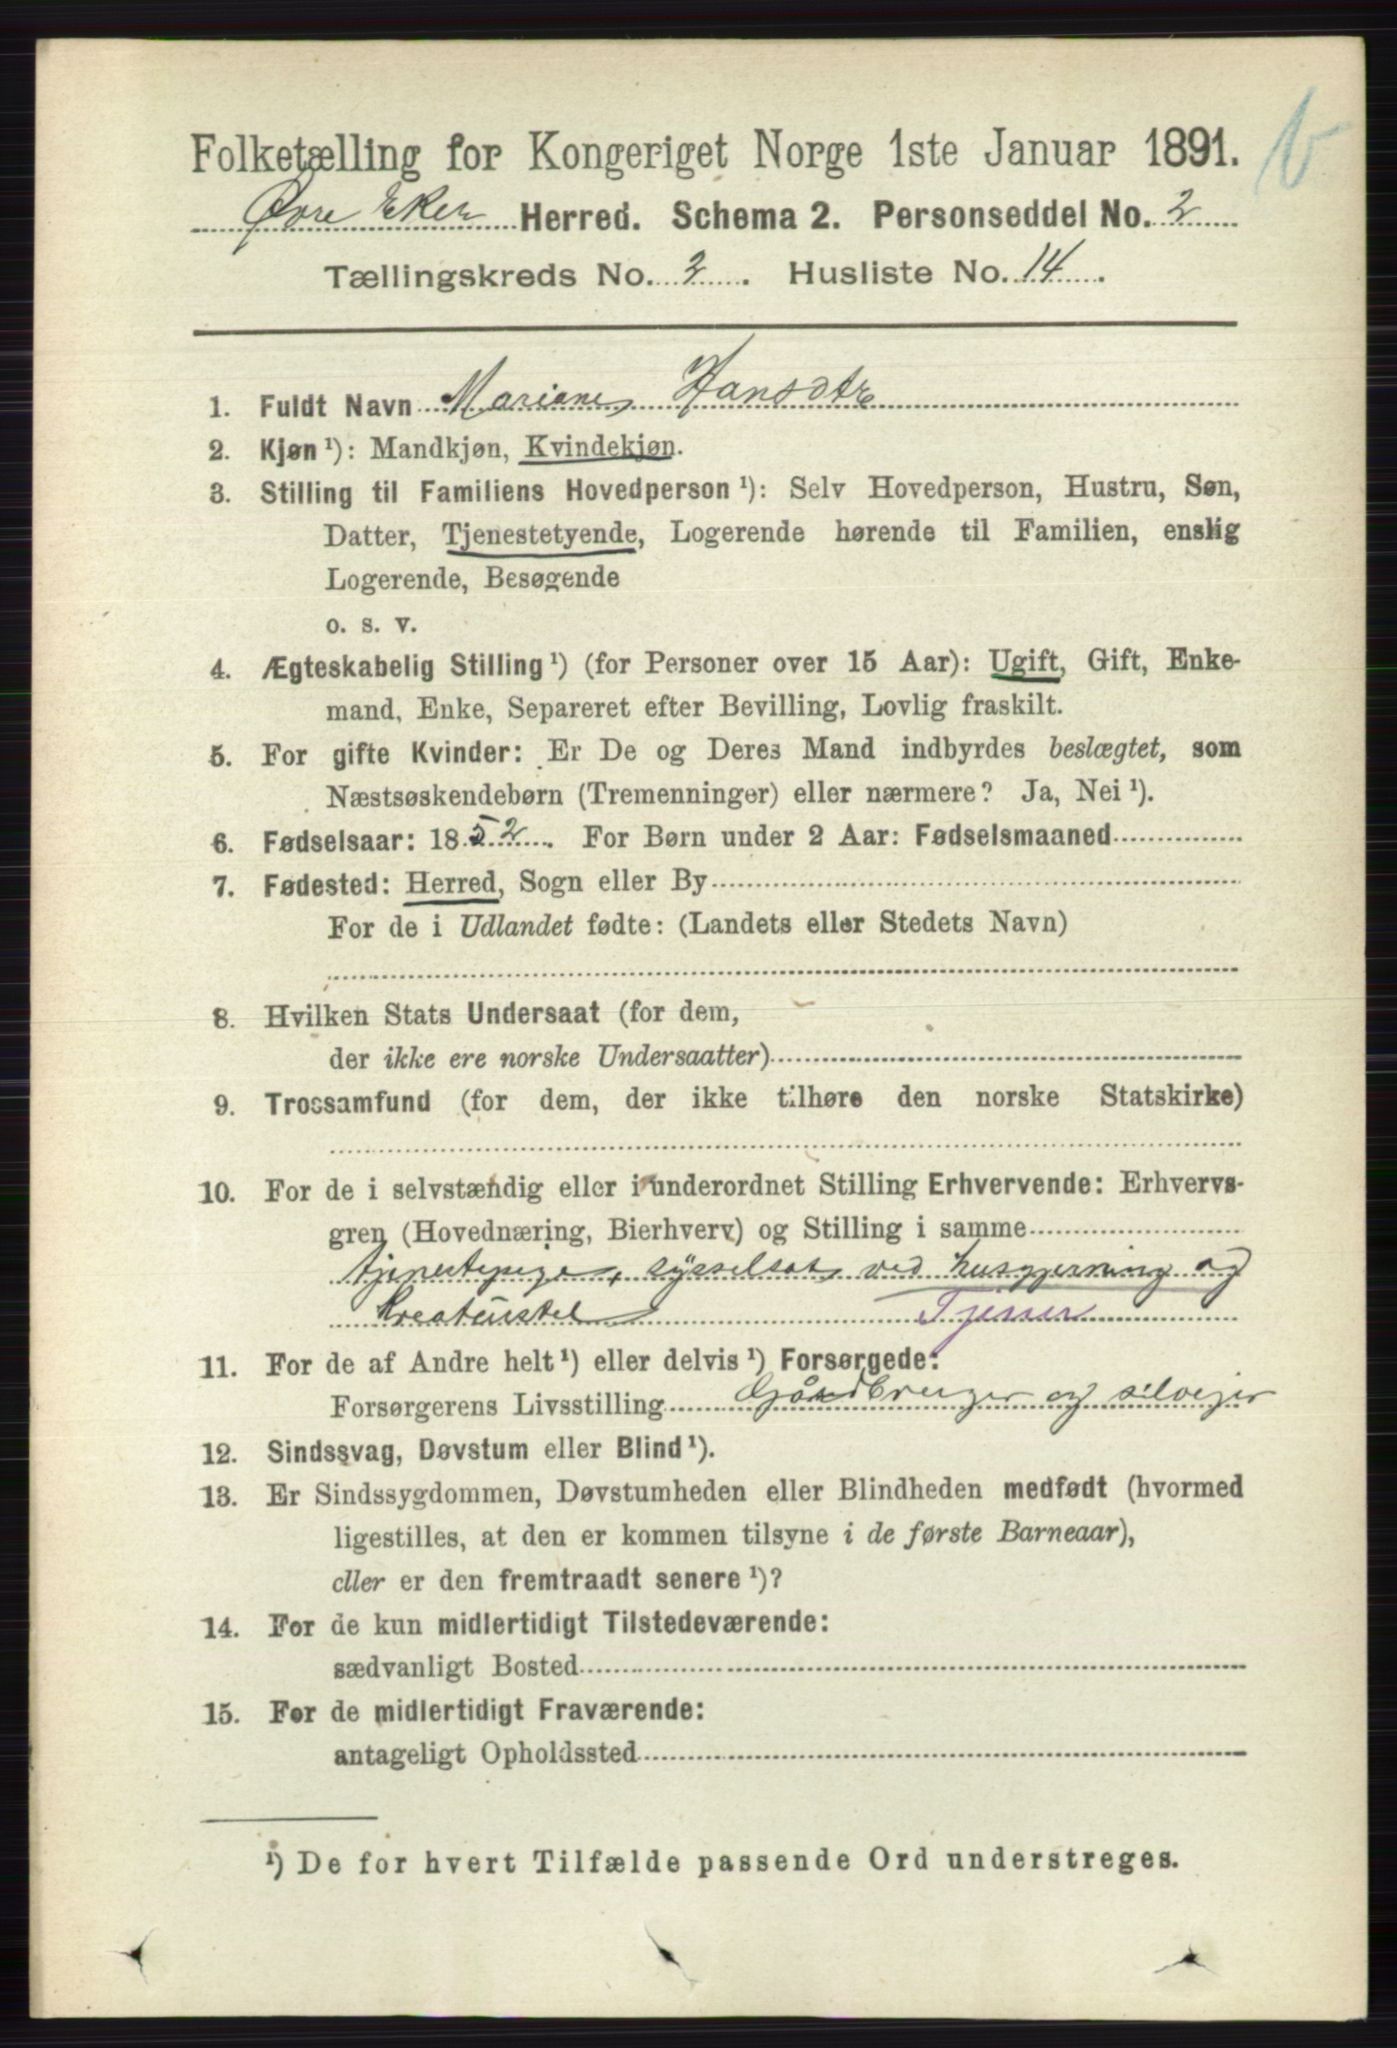 Folketælling for Kongeriget Norge 1ste Januar 1891.
Øvre Eker Herred. Schema 2. Personseddel No. 2
Tællingskreds No. 2. Husliste No. 14.
1. Fuldt Navn Mariane Hansdtr
2. Kjøn ¹): Mandkjøn, Kvindekjøn.
3. Stilling til Familiens Hovedperson ¹): Selv Hovedperson, Hustru, Søn,
Datter, Tjenestetyende, Logerende hørende til Familien, enslig
Logerende, Besøgende
o. s. v.
4. Ægteskabelig Stilling ¹) (for Personer over 15 Aar): Ugift, Gift, Enke-
mand, Enke, Separeret efter Bevilling, Lovlig fraskilt.
5. For gifte Kvinder: Er De og Deres Mand indbyrdes beslægtet, som
Næstsøskendebørn (Tremenninger) eller nærmere? Ja, Nei ¹).
6. Fødselsaar: 1852. For Børn under 2 Aar: Fødselsmaaned
7. Fødested: Herred, Sogn eller By
For de i Udlandet fødte: (Landets eller Stedets Navn)
8. Hvilken Stats Undersaat (for dem,
der ikke ere norske Undersaatter)
9. Trossamfund (for dem, der ikke tilhøre den norske Statskirke)
10. For de i selvstændig eller i underordnet Stilling Erhvervende: Erhvervs-
gren (Hovednæring, Bierhverv) og Stilling i samme
tjenestepige, sysselsat ved husgjerning og
Kreaturstel Tjener
11. For de af Andre helt ¹) eller delvis ¹) Forsørgede:
Forsørgerens Livsstilling Gårdbruger og selvejer
12. Sindssvag, Døvstum eller Blind ¹).
13. Er Sindssygdommen, Døvstumheden eller Blindheden medfødt (hvormed
ligestilles, at den er kommen tilsyne i de første Barneaar),
eller er den fremtraadt senere ¹)?
14. For de kun midlertidigt Tilstedeværende:
sædvanligt Bosted
15. For de midlertidigt Fraværende:
antageligt Opholdssted
¹) De for hvert Tilfælde passende Ord understreges.